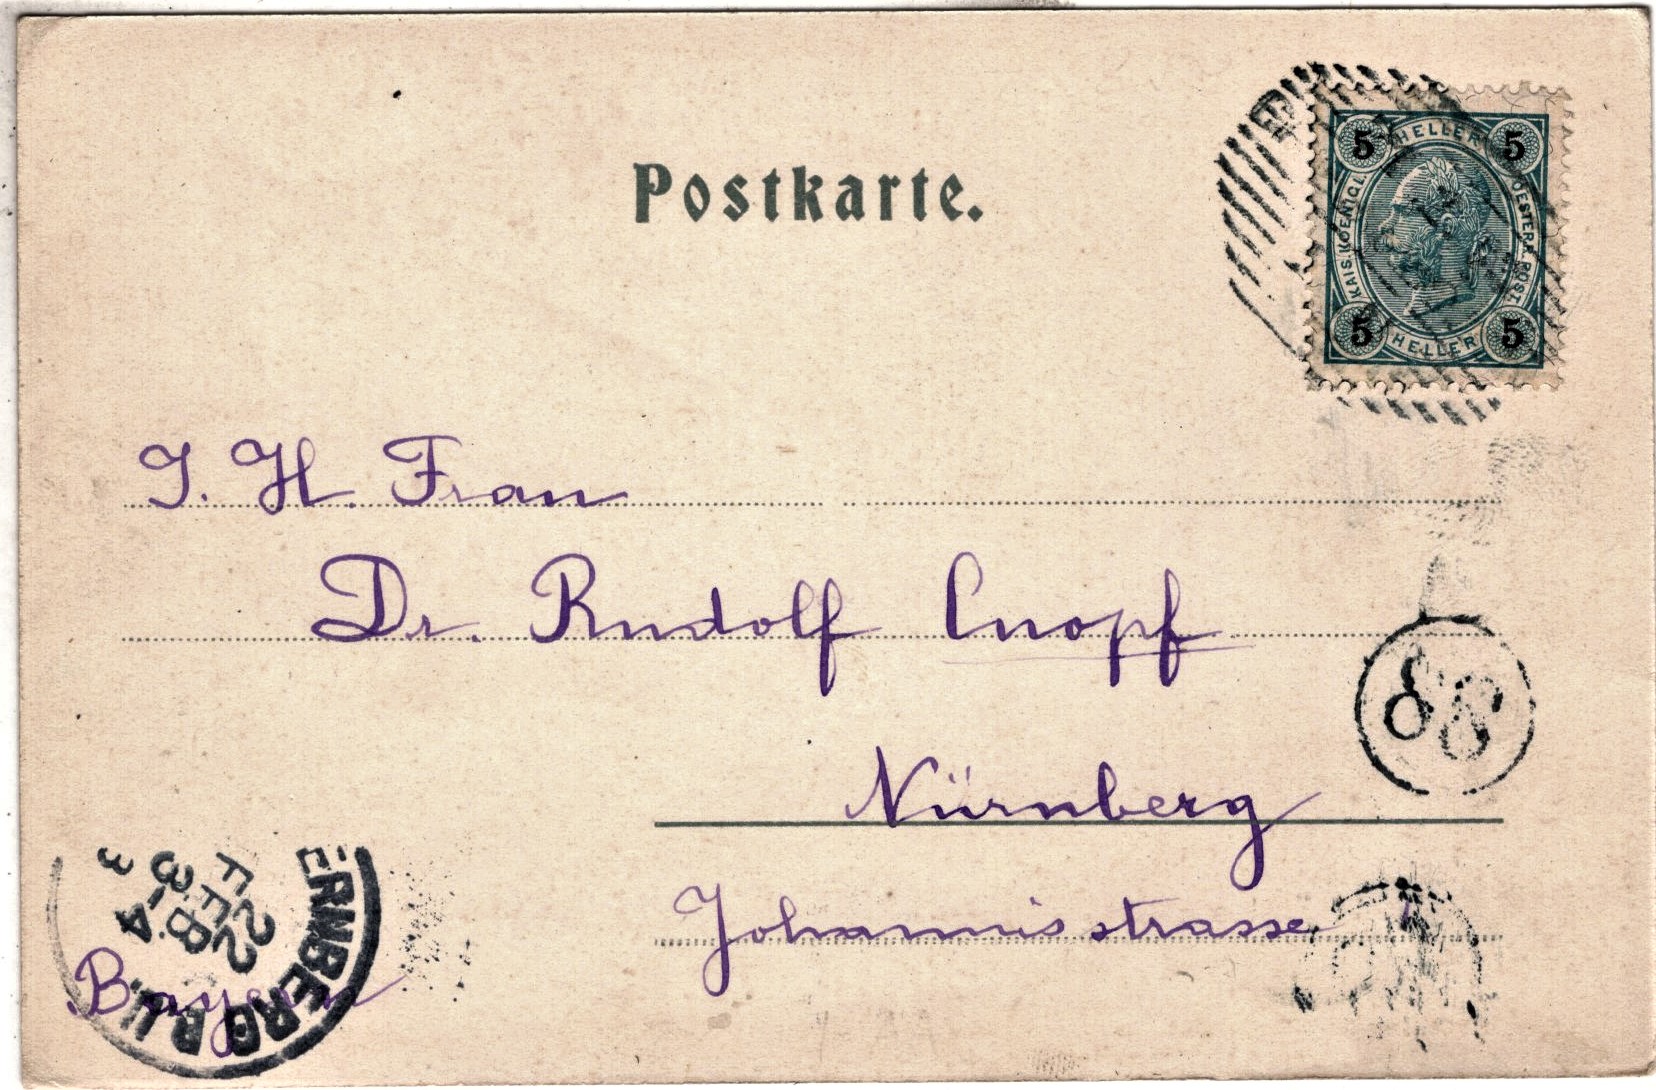 Postkarte.
5 HELLER 5
KAIS. KOENIGL. OESTERR. POST.
5 HELLER 5
I. H. Frau
Dr. Rudolf Cnopf
88
Nürnberg
Johannisstrasse
Bayern
22
FEB
3-4